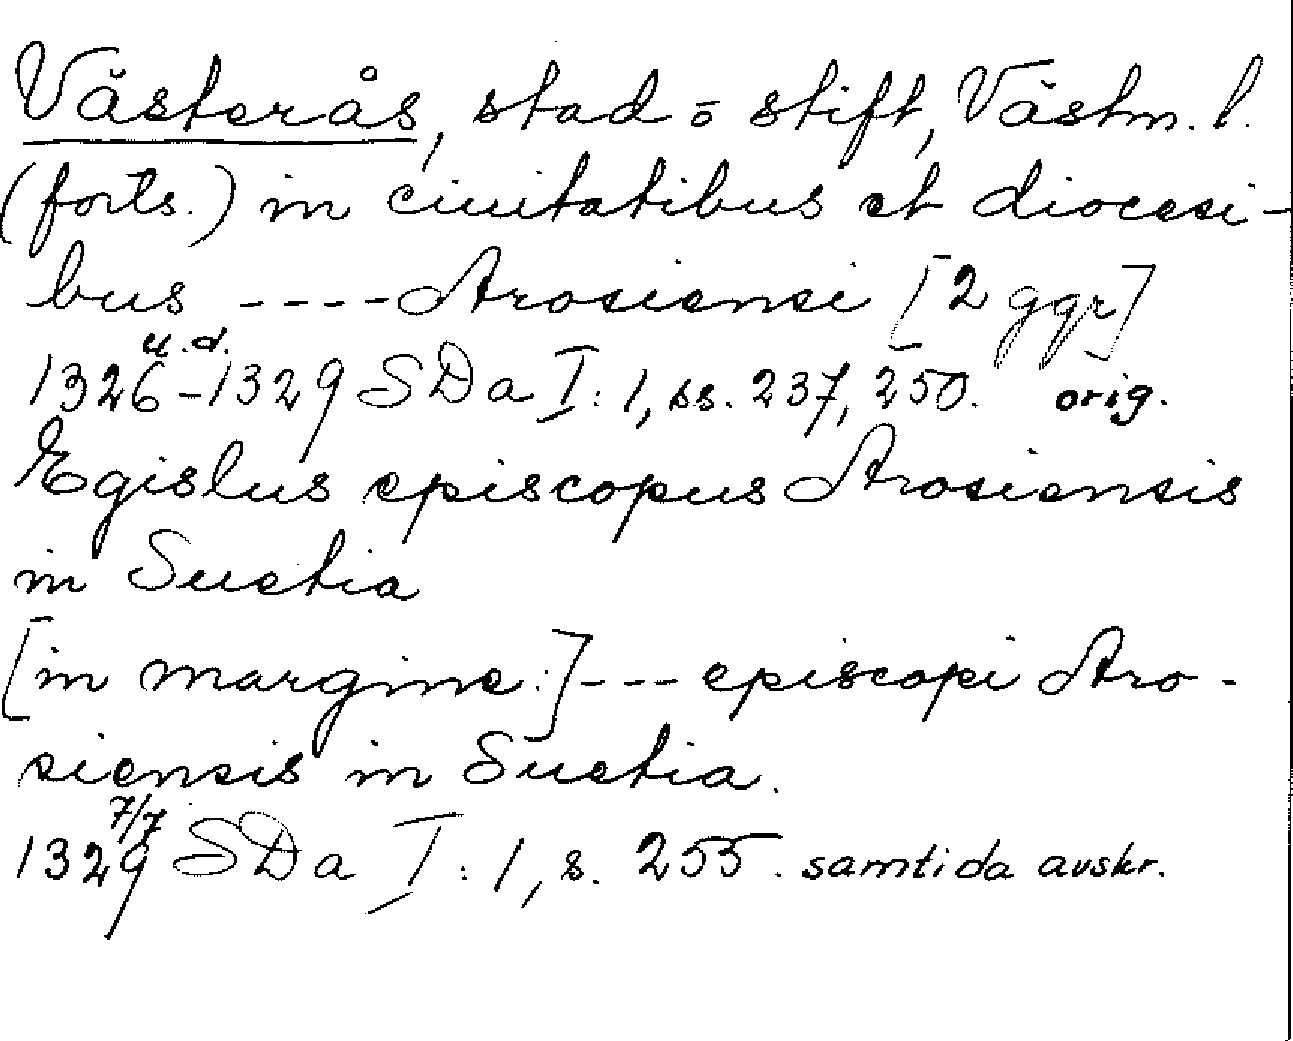 Västerås, stad o stift, Västm. l.
(forts.) in ciuitatibus et diocesi-
bus ---- Arosiensi [2 ggr]
u.d.
1326-1329 SDa I:1, ss. 237, 250. orig.
Egislus episcopus Arosiensis
in Suetia
[in margine:] --- episcopi Aro-
siensis in Suetia.
7/7
1329 SDa I:1, s. 255. samtida avskr.